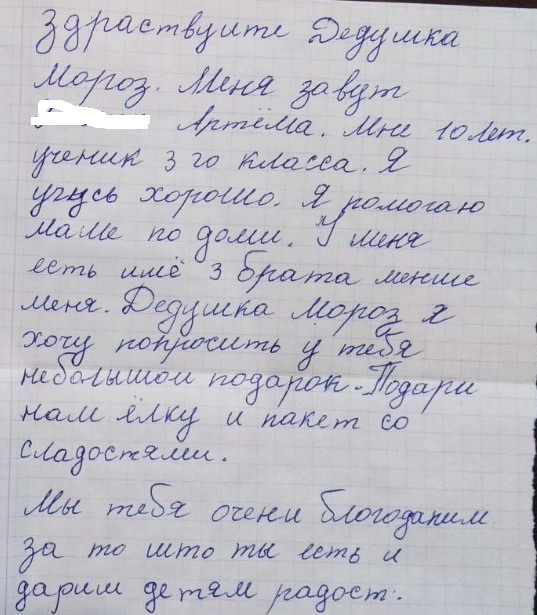 Здраствуите Дедушка
Мороз. Меня завут
Артёма. Мне 10 лет.
ученик 3 го класса. Я
учусь хорошо. Я помогаю
маме по доми. У меня
есть имё 3 брата менше
меня. Дедушка Мороз я
хочу попросить у тебя
неболышои подарок. Подари
нам ёлку и пакет со
сладостями.
Мы тебя очени благодапим
за то што ты есть и
дарим детям радост.